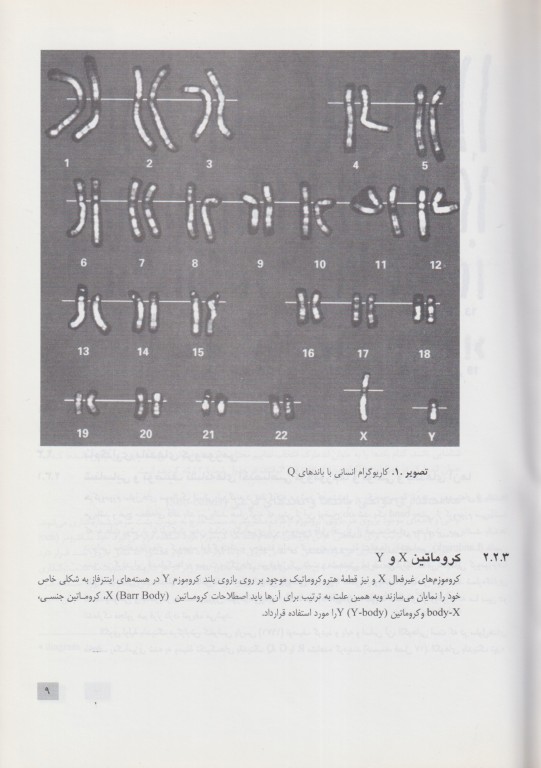 1 2 3 4 5
6 7 8 9 10 11 12
13 14 15 16 17 18
19 20 21 22 X Y
تصویر ۱. کاریوگرام انسانی با باندهای Q
۲.۲.۳ کروماتین X و Y
کروموزم‌های غیرفعال X و نیز قطعهٔ هتروکروماتیک موجود بر روی بازوی بلند کروموزم Y در هسته‌های اینترفاز به شکلی خاص
خود را نمایان می‌سازند وبه همین علت به ترتیب برای آن‌ها باید اصطلاحات کروماتین X (Barr Body)، کروماتین جنسی،
body-X وکروماتین Y (Y-body)را مورد استفاده قرارداد.
۹